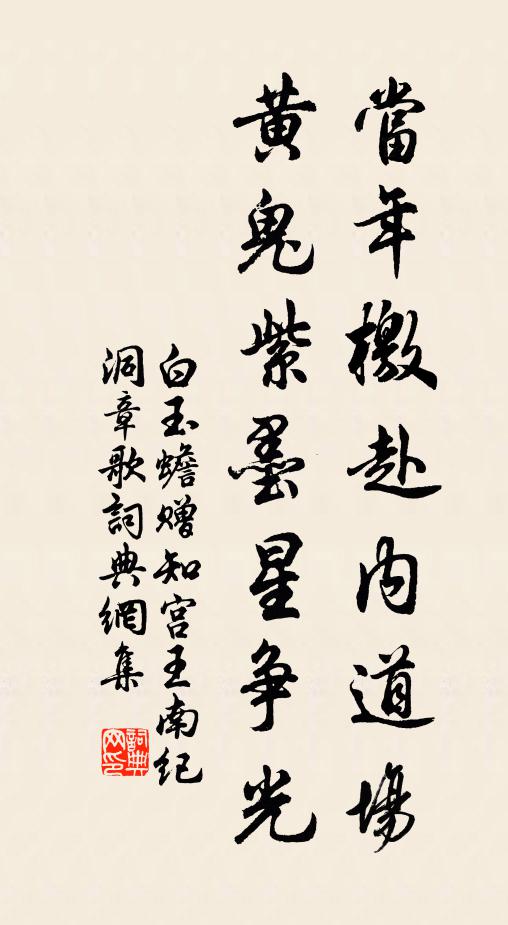 當年檄赴內道場
黃鬼紫墨星争光
白玉蟾贈知宮王南紀
洞章歌詞典網集
詞典
网印